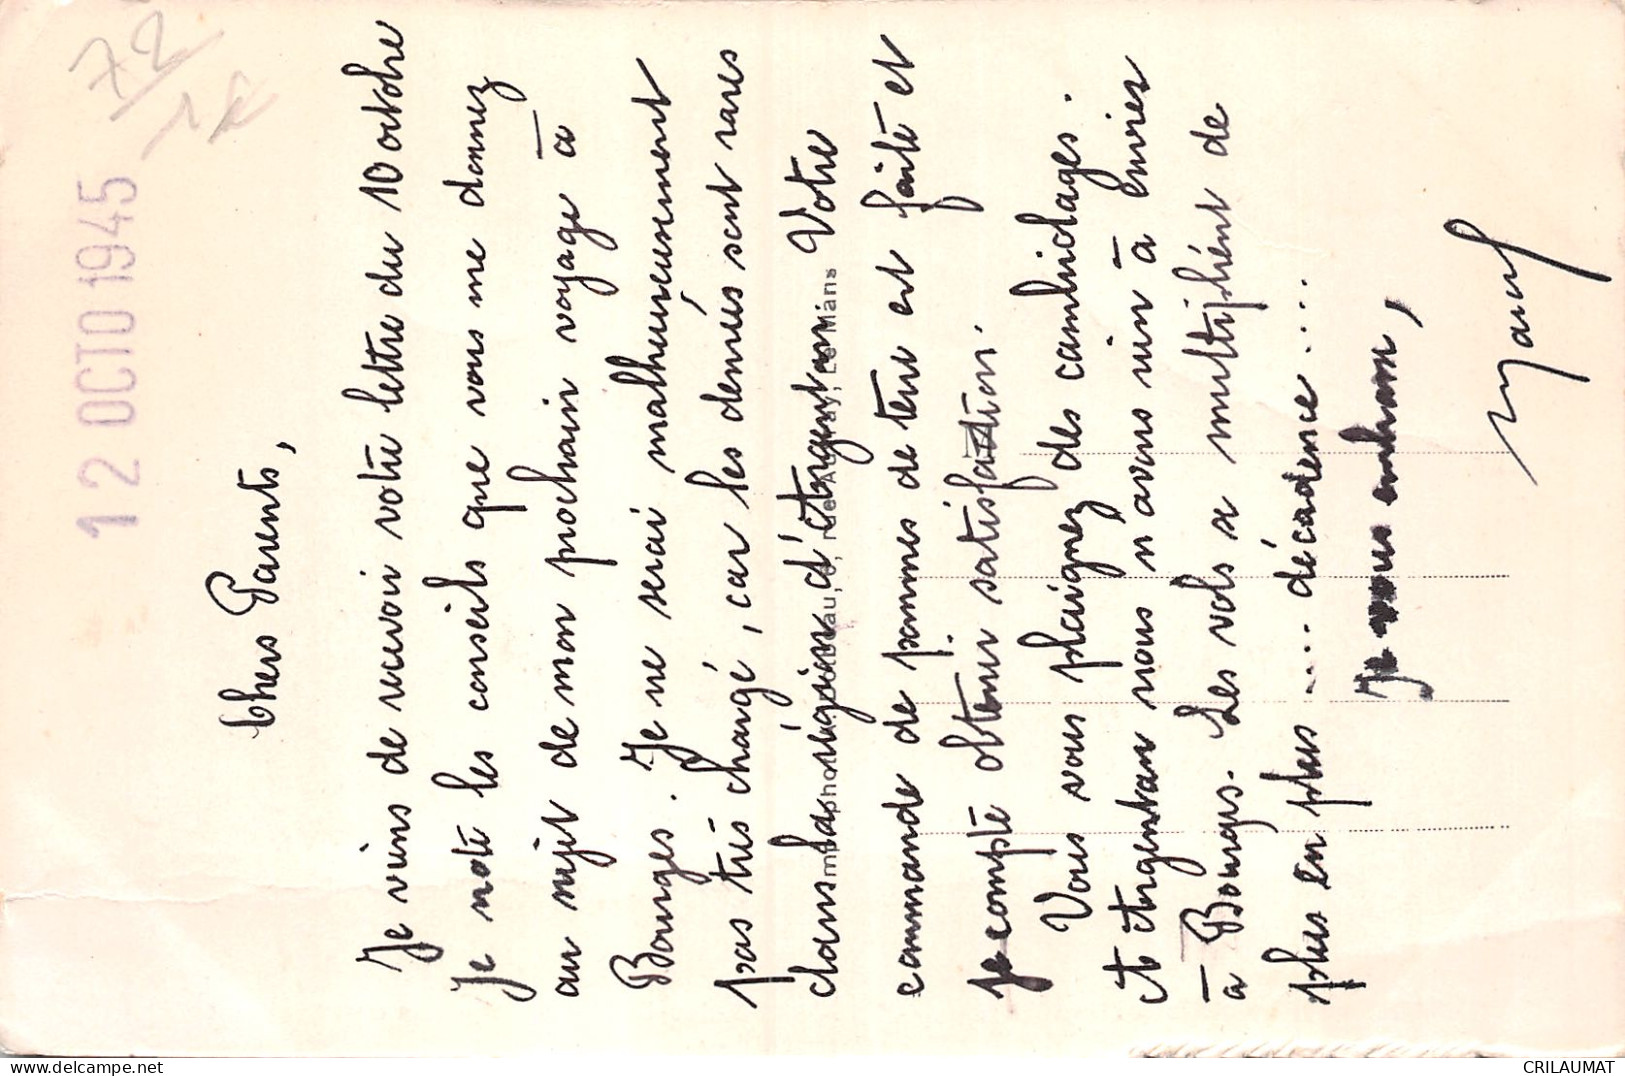 72
12 OCTO 1945
Chers Parents,
Je viens de recevoir votre lettre du 10 octobre
Je note les conseils que vous me donnez
au sujet de mon prochain voyage à
Bourges. Je ne serai malheureusement
pas très chargé, car les denrées sont rares
dans la région d'Argentan. Votre
commande de pommes de terre est faite et
je compte obtenir satisfaction.
Vous vous plaignez des cambriolages.
A Argentan nous n'avons rien à envier
à Bourges. Les vols se multiplient de
plus en plus .... décadence ....
Je vous embrasse,
Le Mans
CRILAUMAT